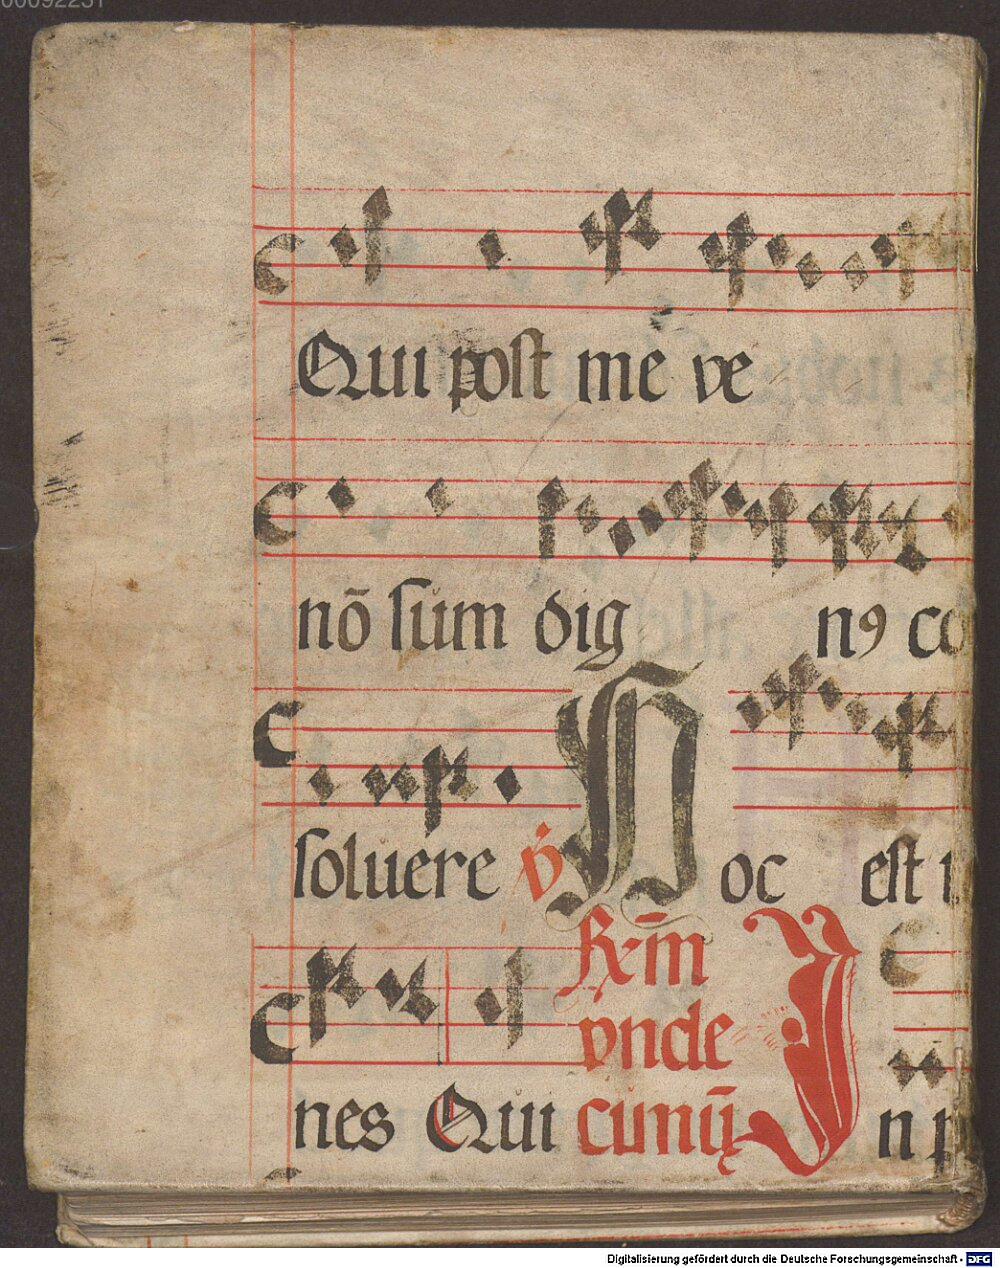 00092231
Qui post me ve
nō sum dig nꝰ co
soluere ℣ Hoc est
nes Qui
vnde
In p
Digitalisierung gefördert durch die Deutsche Forschungsgemeinschaft - DFG